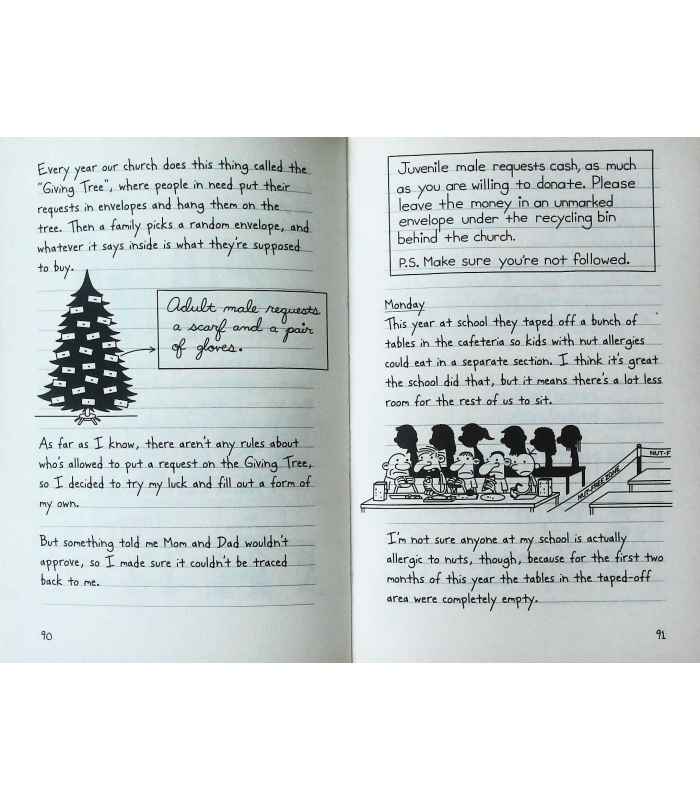 Every year our church does this thing called the
"Giving Tree", where people in need put their
requests in envelopes and hang them on the
tree. Then a family picks a random envelope, and
whatever it says inside is what they're supposed
to buy.
Adult male requests
a scarf and a pair
of gloves.
As far as I know, there aren't any rules about
who's allowed to put a request on the Giving Tree,
so I decided to try my luck and fill out a form of
my own.
But something told me Mom and Dad wouldn't
approve, so I made sure it couldn't be traced
back to me.
90
Juvenile male requests cash, as much
as you are willing to donate. Please
leave the money in an unmarked
envelope under the recycling bin
behind the church.
P.S. Make sure you're not followed.
Monday
This year at school they taped off a bunch of
tables in the cafeteria so kids with nut allergies
could eat in a separate section. I think it's great
the school did that, but it means there's a lot less
room for the rest of us to sit.
NUT-F
NUT-FREE ZONE
I'm not sure anyone at my school is actually
allergic to nuts, though, because for the first two
months of this year the tables in the taped-off
area were completely empty.
91